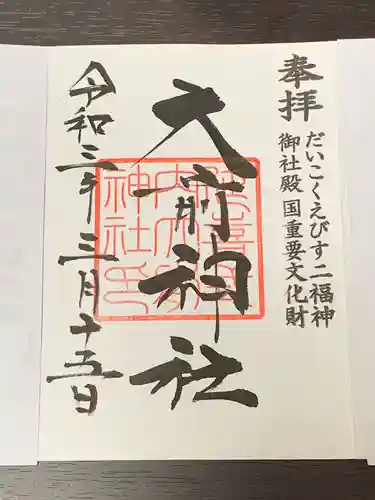 奉拝
だいこくえびす二福神
御社殿国重要文化財
大前神社
令和三年三月十五日